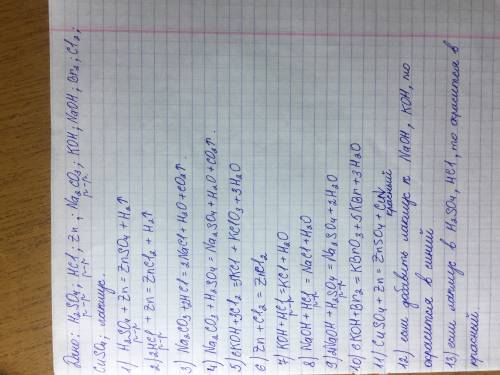 Дано: H₂SO₄; HCl; Zn; Na₂CO₃; KOH; NaOH; Br₂; Cl₂;
р-р р-р р-р
CuSO₄; лакмус.
1) H₂SO₄ + Zn = ZnSO₄ + H₂↑
р-р
2) 2HCl + Zn = ZnCl₂ + H₂↑
р-р
3) Na₂CO₃ + 2HCl = 2NaCl + H₂O + CO₂↑.
4) Na₂CO₃ + H₂SO₄ = Na₂SO₄ + H₂O + CO₂↑.
5) 6KOH + 3Cl₂ = 5KCl + KClO₃ + 3H₂O
6) Zn + Cl₂ = ZnCl₂
7) KOH + HCl = KCl + H₂O
р-р
8) NaOH + HCl = NaCl + H₂O
р-р
9) 2NaOH + H₂SO₄ = Na₂SO₄ + 2H₂O
р-р
10) 6KOH + Br₂ = KBrO₃ + 5KBr + 3H₂O
11) CuSO₄ + Zn = ZnSO₄ + Cu↓
красный
12) если добавить лакмус к NaOH, KOH, то
окрасится в синий
13) если лакмус в H₂SO₄, HCl, то окрасится в
красный